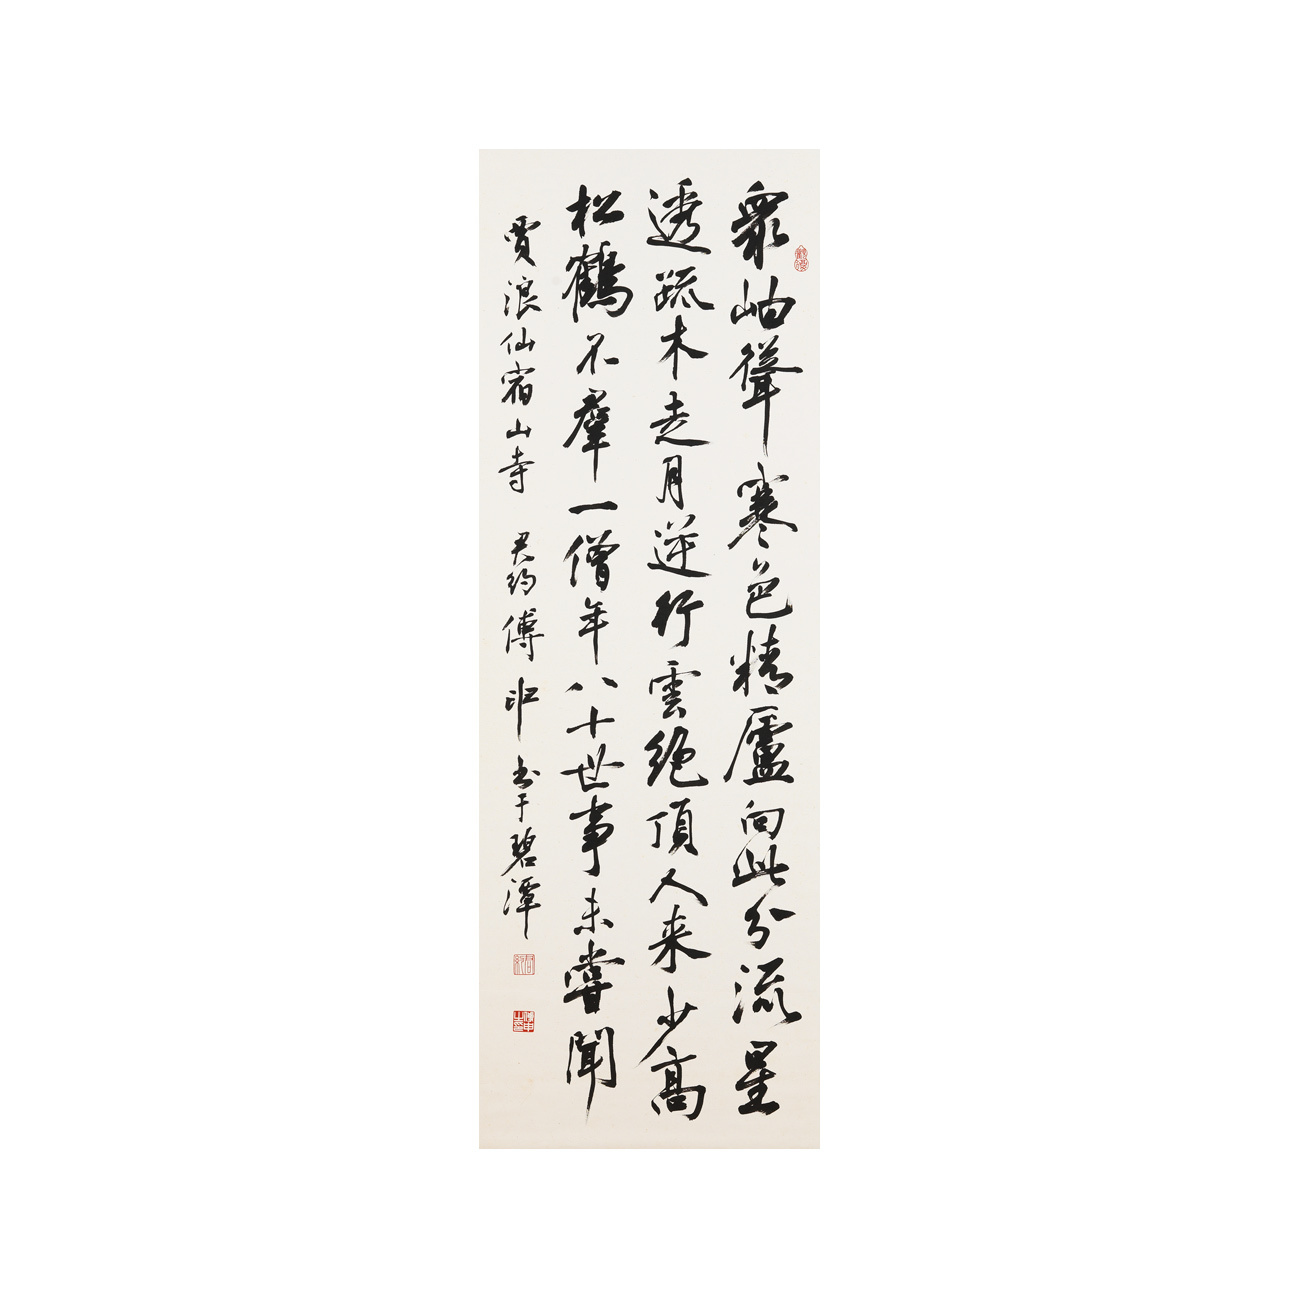 眾岫聳寒色精廬向此分流星
透疏木走月逆行雲絕頂人来少高
松鶴不羣一僧年八十世事未嘗聞
賈浪仙宿山寺 君約傅申书于碧潭